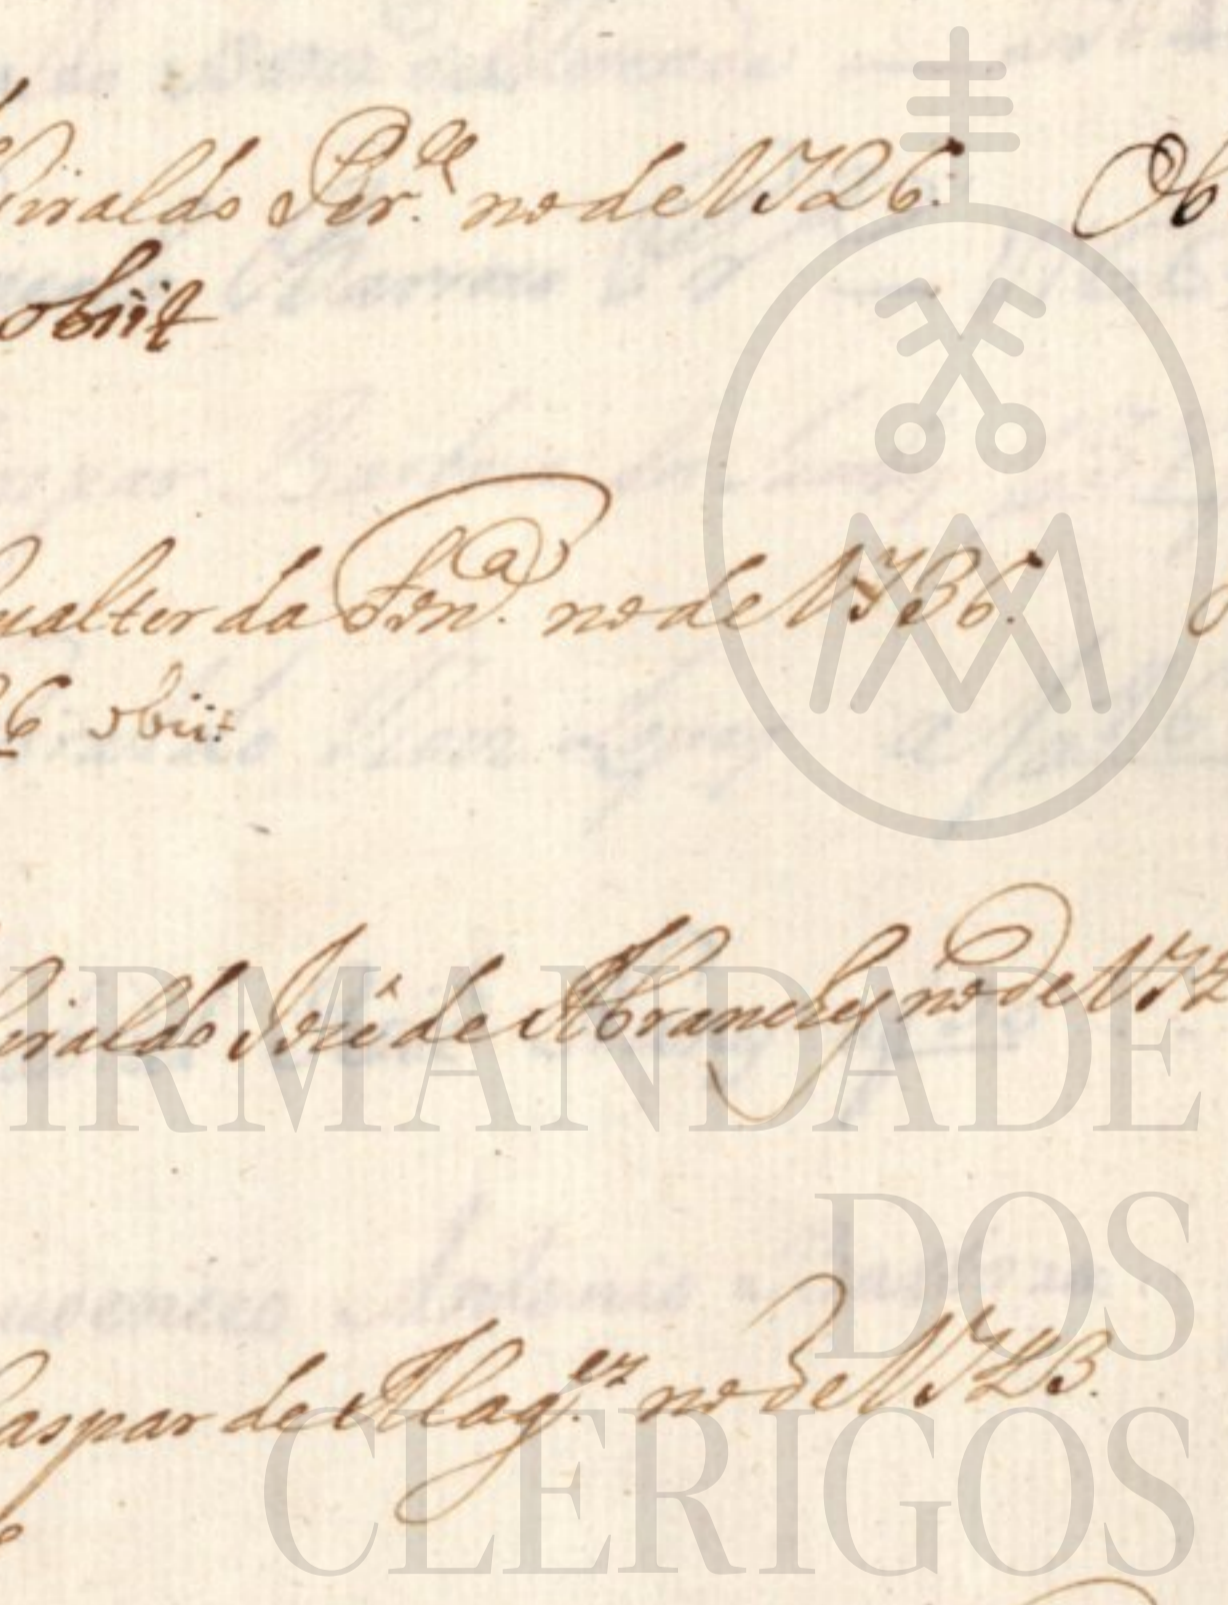 Giraldo Per.ª no de 1726. Ob
obiit
ualter da Fon.ca no de 1736.
6 obiit
Giraldo José de Abranches no de 172
aspar de Mag.ez no de 1723.
IRMANDADE
DOS
CLERIGOS